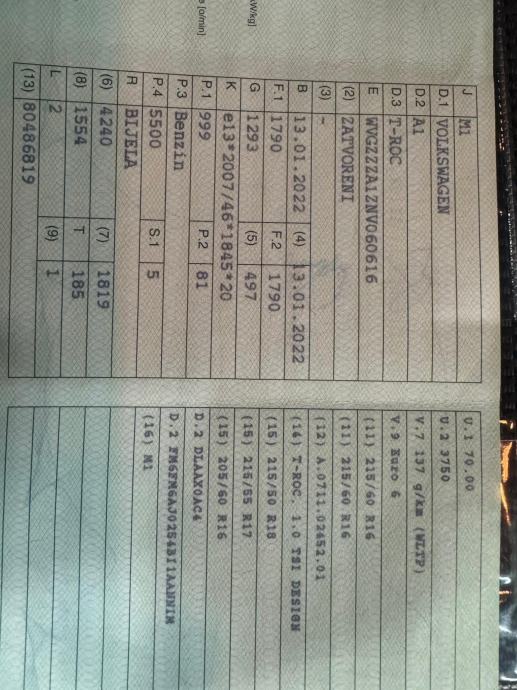 J M1
D.1 VOLKSWAGEN
D.2 A1
D.3 T-ROC
E WVGZZZA1ZNV060616
(2) ZATVORENI
(3) -
B 13.01.2022 (4) 13.01.2022
F.1 1790 F.2 1790
G 1293 (5) 497
K e13*2007/46*1845*20
P.1 999 P.2 81
P.3 Benzin
P.4 5500 S.1 5
R BIJELA
(6) 4240 (7) 1819
(8) 1554 T 185
L 2 (9) 1
(13) 80486819
U.1 70.00
U.2 3750
V.7 137 g/km (WLTP)
V.9 Euro 6
(11) 215/60 R16
(11) 215/60 R16
(12) A.0711.02452.01
(14) T-ROC. 1.0 TSI DESIGN
(15) 215/50 R18
(15) 215/55 R17
(15) 205/60 R16
D.2 DLAAX0AC4
D.2
(16) M1
kW/kg]
[o/min]